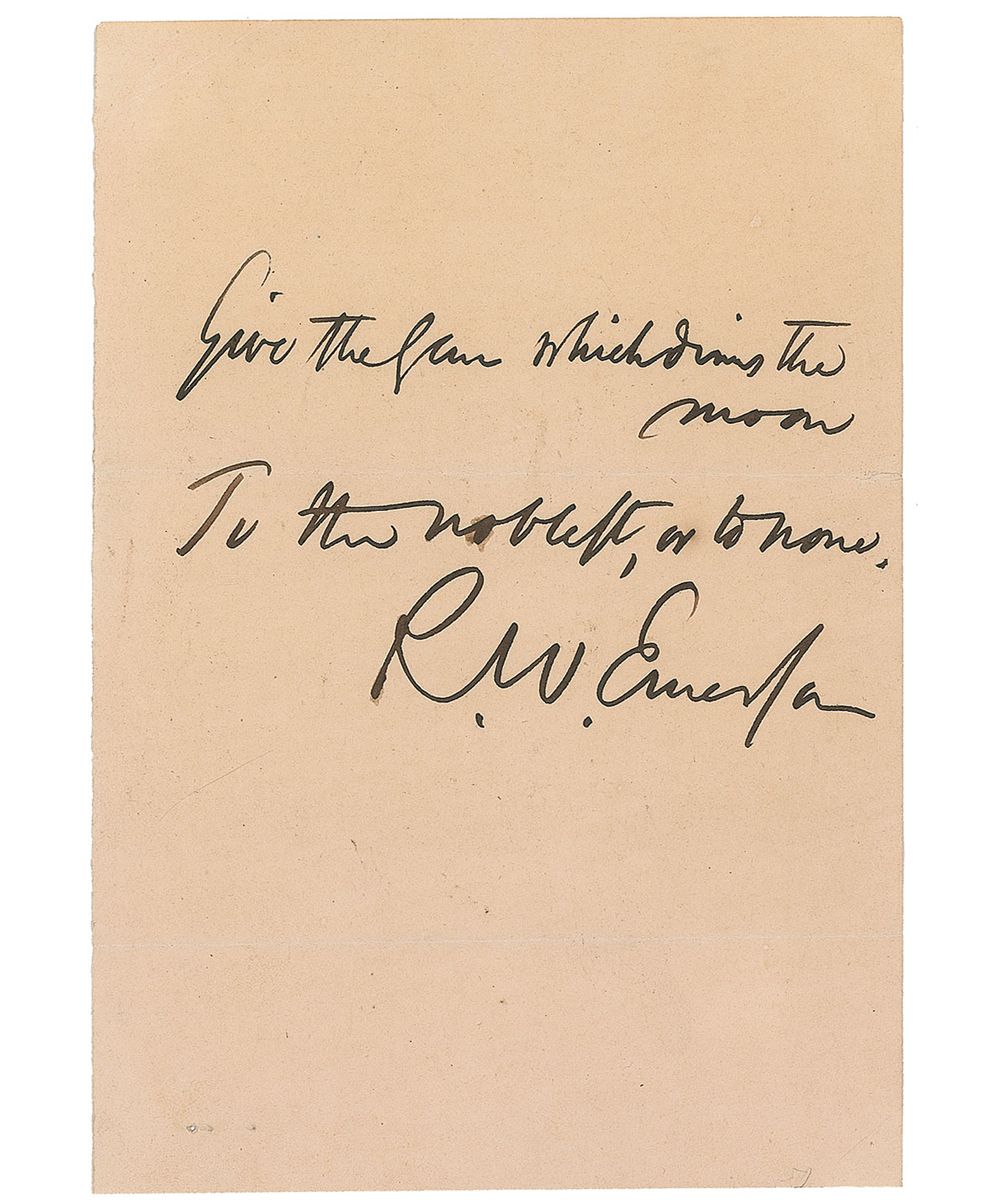 Give the Gem which dims the
moon
To the noblest, or to none.
R. W. Emerson